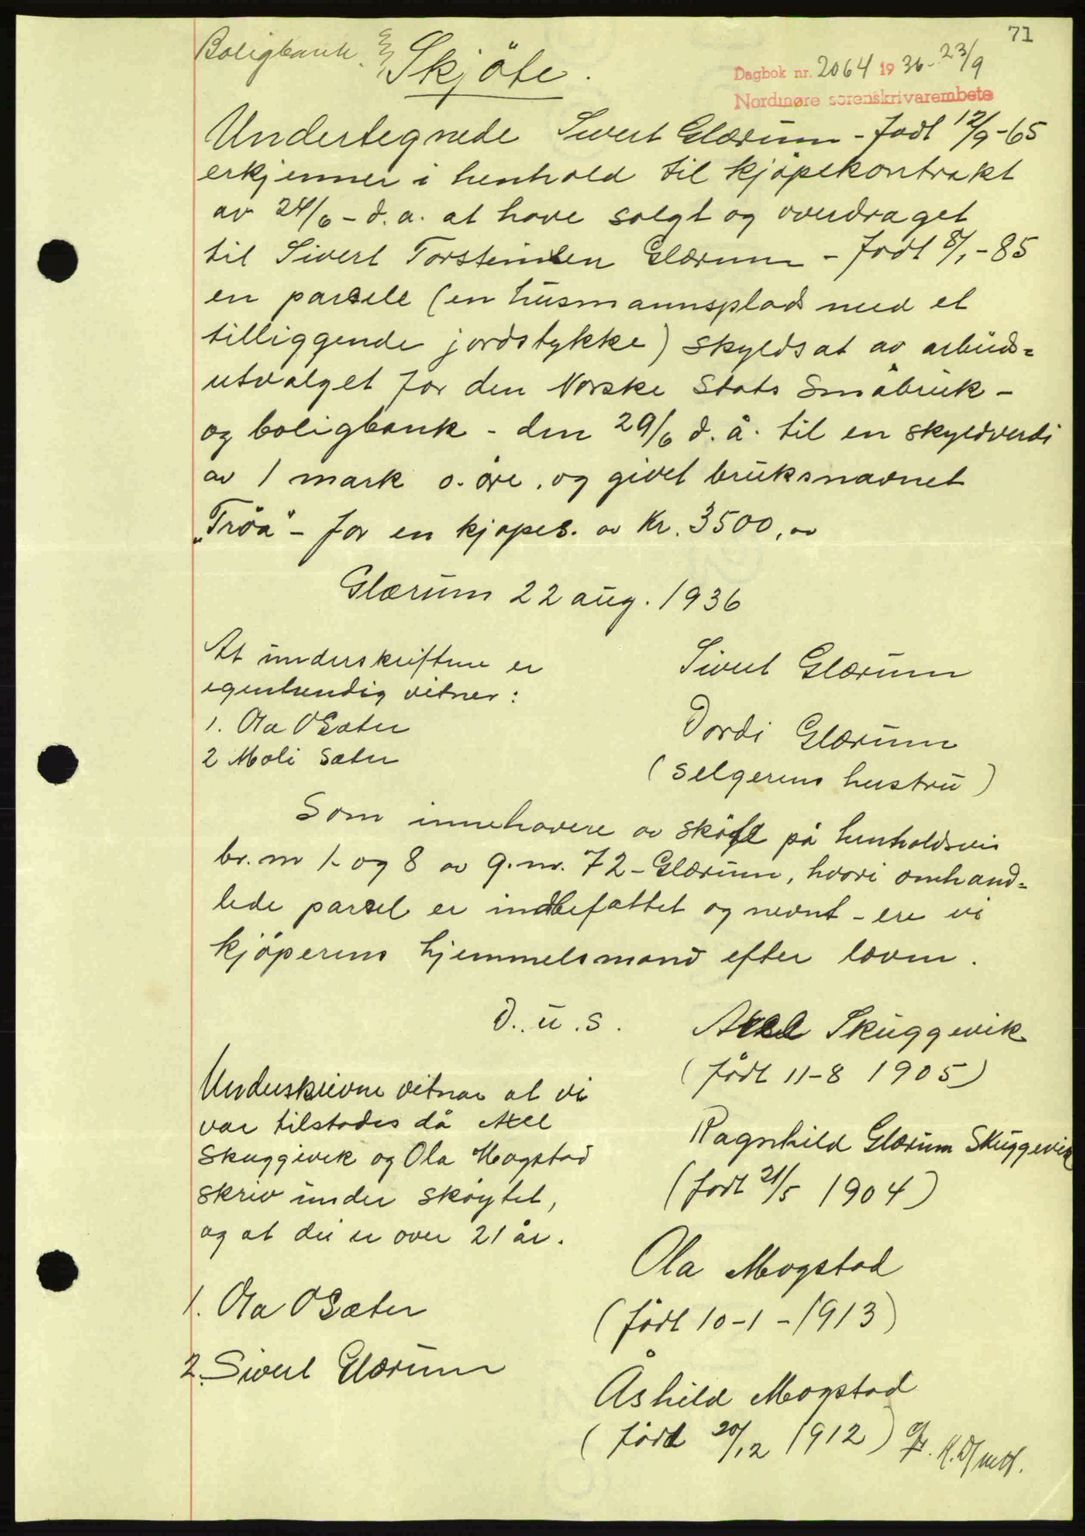 71
Boligbank.
Skjöte.
Dagbok nr. 2064 1936-23/9
Nordmøre sorenskrivarembete
Undertegnede Sivert Glærum - født 12/9-65
erkjenner i henhold til kjöpekontrakt
av 24/6 - d.a. at have solgt og overdraget
til Sivert Torsteinsen Glærum - født 8/1-85
en parsele (en husmannsplads med et
tilliggende jordstykke) skyldsat av arbeids=
utvalget for den Norske Stats Småbruk-
og boligbank - den 29/6 d.å. til en skyldverdi
av 1 mark o. öre, og givet bruksnavnet
„Tröa" - for en kjøpes. av Kr. 3500,00
Glærum 22 aug. 1936
At underskriftene er
egenhendig vitner:
1. Ola O Sæter
2 Moli Sæter
Sivert Glærum
Dordi Glærum
(selgerens hustru)
Som innehavere av sköte på henholdsvis
br. nr 1- og 8 av g.nr. 72 - Glærum, hvori omhand=
lede parsel er indbefattet og nevnt - ere vi
kjöperens hjemmelsmand efter loven.
D.u.s.
Axel Skuggevik
(født 11-8 1905)
Underskrivne vitnar at vi
var tilstades då Axel
Skuggevik og Ola Mogstad
skriv under skøytet,
og at dei er over 21 år.
Ragnhild Glærum Skuggevik
(født 21/5 1904)
Ola Mogstad
(født 10-1-1913)
1. Ola O Sæter
2. Sivert Glærum
Åshild Mogstad
(født 20/12 1912)